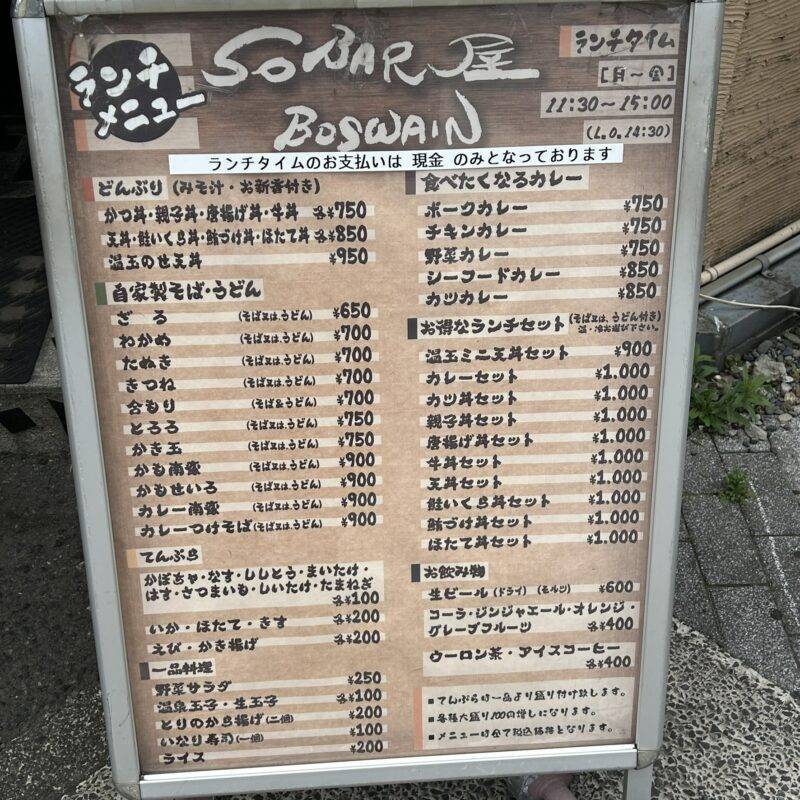 ランチ
メニュー
SOBAR屋
BOSWAIN
ランチタイム
[月～金]
11:30～15:00
(L.O.14:30)
ランチタイムのお支払いは 現金 のみとなっております
どんぶり (みそ汁・お新香付き)
かつ丼・親子丼・唐揚げ丼・牛丼 各¥750
天丼・鮭いくら丼・鮪づけ丼・ほたて丼 各¥850
温玉のせ天丼 ¥950
自家製そば・うどん
ざる (そば又は、うどん) ¥650
わかめ (そば又は、うどん) ¥700
たぬき (そば又は、うどん) ¥700
きつね (そば又は、うどん) ¥700
合もり (そば&うどん) ¥700
とろろ (そば又は、うどん) ¥750
かき玉 (そば又は、うどん) ¥750
かも南蛮 (そば又は、うどん) ¥900
かもせいろ (そば又は、うどん) ¥900
カレー南蛮 (そば又は、うどん) ¥900
カレーつけそば (そば又は、うどん) ¥900
てんぷら
かぼちゃ・なす・ししとう・まいたけ・
はす・さつまいも・しいたけ・たまねぎ
各¥100
いか・ほたて・きす 各¥200
えび・かき揚げ 各¥200
一品料理
野菜サラダ ¥250
温泉玉子・生玉子 各¥100
とりのから揚げ(二個) ¥200
いなり寿司(一個) ¥100
ライス ¥200
食べたくなるカレー
ポークカレー ¥750
チキンカレー ¥750
野菜カレー ¥750
シーフードカレー ¥850
カツカレー ¥850
お得なランチセット (そば又は、うどん付き)
温・冷お選び下さい。
温玉ミニ天丼セット ¥900
カレーセット ¥1.000
カツ丼セット ¥1.000
親子丼セット ¥1.000
唐揚げ丼セット ¥1.000
牛丼セット ¥1.000
天丼セット ¥1.000
鮭いくら丼セット ¥1.000
鮪づけ丼セット ¥1.000
ほたて丼セット ¥1.000
お飲み物
生ビール (ドライ) (モルツ) ¥600
コーラ・ジンジャエール・オレンジ・
グレープフルーツ 各¥400
ウーロン茶・アイスコーヒー
各¥400
■てんぷらは一品より盛り付け致します。
■各種大盛り100の増しになります。
■メニューは全て税込価格となります。